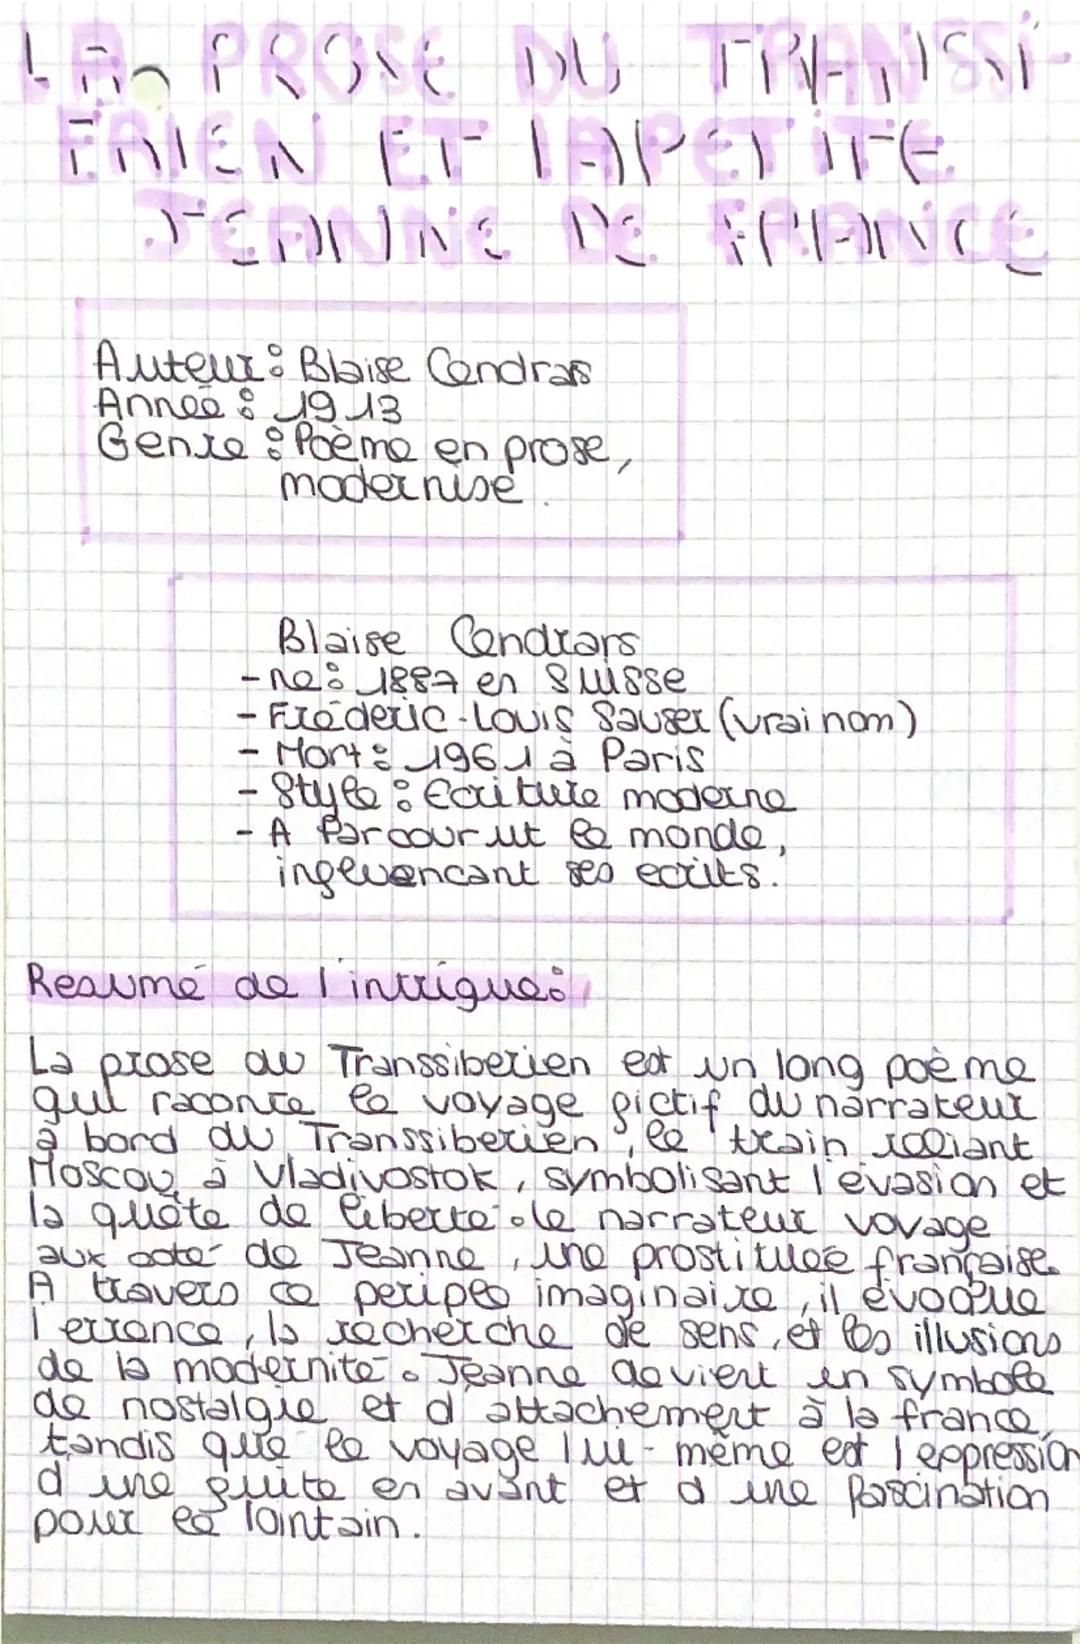 LA PROSE DU TRANSSI-
ERIEN ET LA PETITE
JEANNE DE FRANCE
Auteur : Blaise Cendras
Année : 1913
Genre : Poème en prose,
modernise.
Blaise Cendrars
- né : 1887 en Suisse
- Fréderic-Louis Sauser (vrai nom)
- Mort : 1961 à Paris
- Style : Ecriture moderne
- A Parcourut le monde,
influencant ses ecrits.
Resumé de l'intrigue :
La prose du Transsiberien est un long poème
qui raconte le voyage fictif du narrateur
à bord du Transsiberien, le train reliant
Moscou à Vladivostok, symbolisant l'évasion et
la quête de liberté. le narrateur voyage
aux coté de Jeanne, une prostituée française.
A travers ce periple imaginaire, il évoque
l'errance, la recherche de sens, et les illusions
de la modernité. Jeanne devient un symbole
de nostalgie et d'attachement à la france,
tandis que le voyage lui-même est l'eppression
d'une fuite en avant et d'une fascination
pour le lointain.